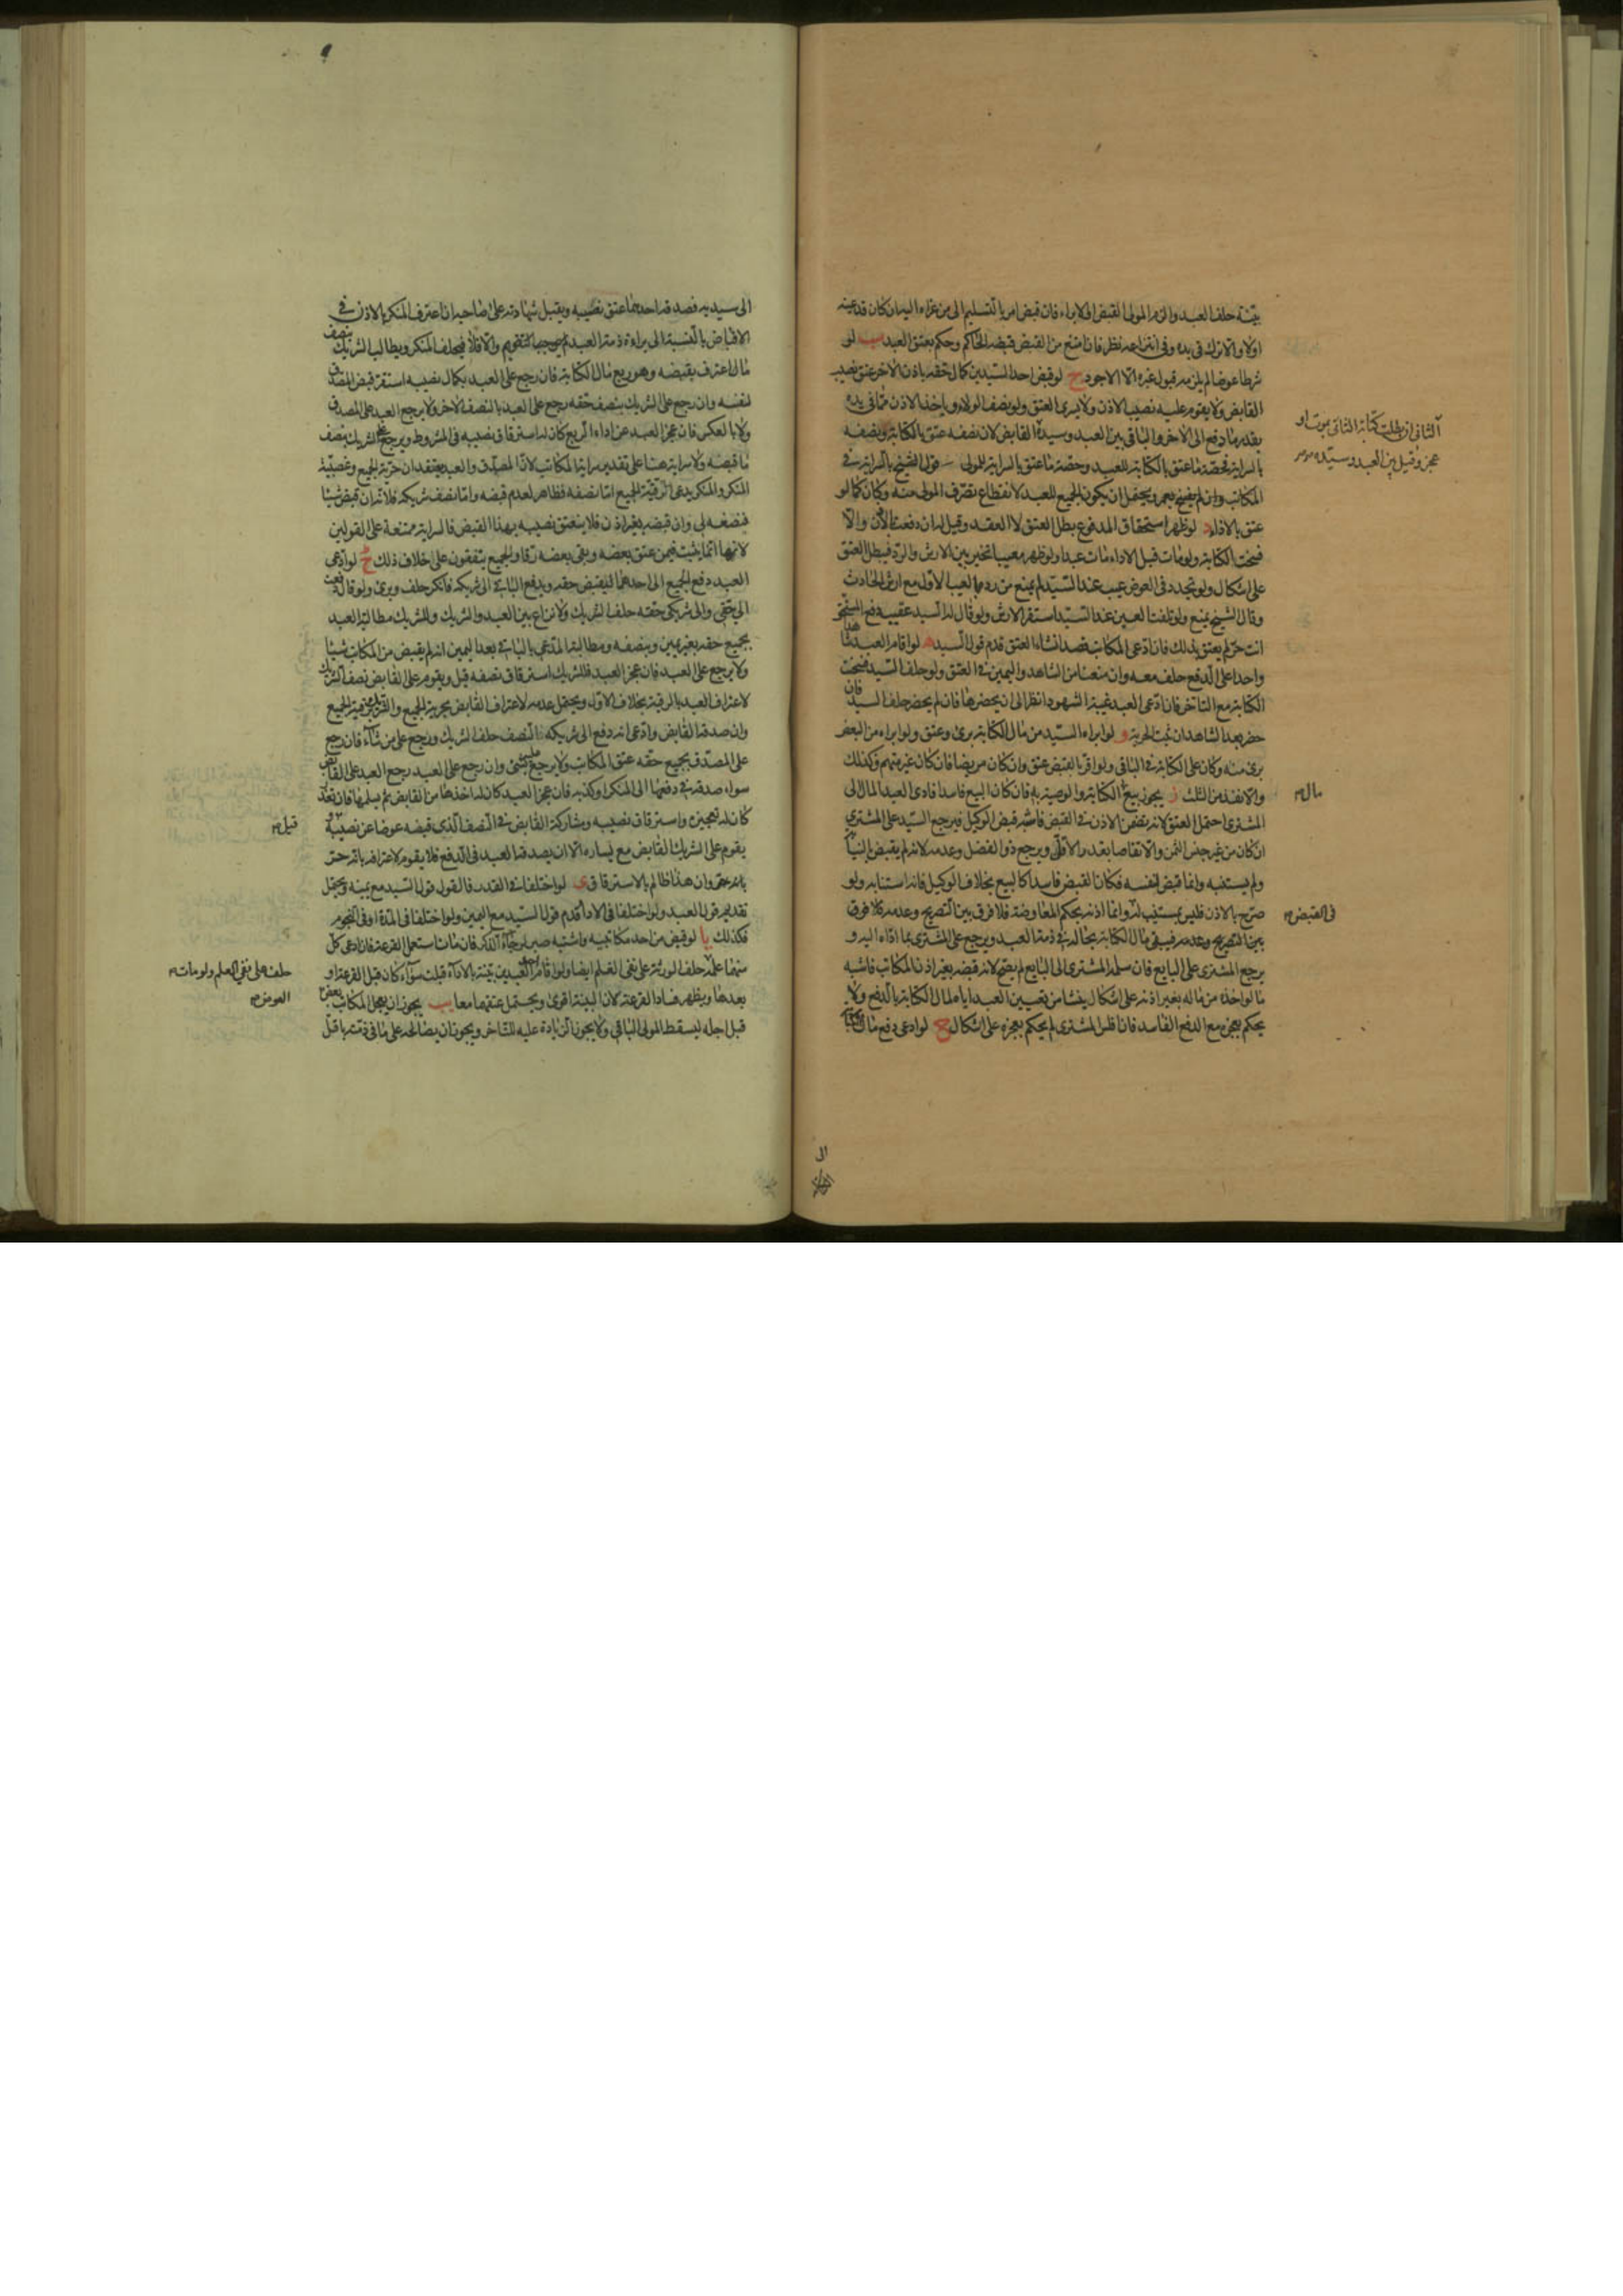 بينة حلف العبد والزم المولى القبض او الابراء فان قبض امر بالتسليم الى من عزاه اليه ان كان قد عينه
اولا والا ترك فى يده وفى انتزاعه نظر فان امتنع من القبض قبضه الحاكم وحكم بعتق العبد ب لو
شرطا عوضا لم يلزمه قبول غيره الا الاجود ج لو قبض احد السيدين كمال حقه باذن الاخر عتق نصيب
القابض ولا يقوم عليه نصيب الاذن ولا يسرى العتق وله نصف الولاء وياخذ الاذن مما فى يده
بقدر ما دفع الى الاخر والباقى بين العبد وسيده القابض لان نصفه عتق بالكتابة ونصفه
بالسراية فحصة ما عتق بالكتابة للعبد وحصة ما عتق بالسراية للمولى قول الشيخ بالسراية فى
المكاتب وان لم يفسخ بعجزه ويحتمل ان يكون الجميع للعبد لانقطاع تصرف المولى عنه وكان كما لو
عتق بالاداء د لو ظهر استحقاق المدفوع بطل العتق لا العقد وقيل له ان دفعت الان والا
فسخت الكتابة ولو مات قبل الاداء مات عبدا ولو ظهر معيبا تخير بين الارش والرد فيبطل العتق
على اشكال ولو تجدد فى العوض عيب عند السيد لم يمنع من رده بالعيب الاول مع ارش الحادث
وقال الشيخ يمنع ولو تلفت العين عند السيد استقر الارش ولو قال له السيد عقيب دفع المستحق
انت حر لم يعتق بذلك فان ادعى المكاتب قصد انشاء العتق قدم قول السيد ه لو اقام العبد شاهدا
واحدا على الدفع حلف معه وان منعنا من الشاهد واليمين فى العتق ولو حلف السيد فسخت
الكتابة مع التاخر فان ادعى العبد غيبة الشهود انظر الى ان يحضرها فان لم يحضر حلف السيد فان
حضر بعد الشاهدان ثبت الحرية و لو ابراه السيد من مال الكتابة برئ وعتق ولو ابراه من البعض
برئ منه وكان على الكتابة فى الباقى ولو اقر بالقبض عتق وان كان مريضا فان كان غير متهم فكذلك
والا نفذ من الثلث ز يجوز بيع الكتابة والوصية به فان كان البيع فاسدا فادى العبد المال الى
المشترى احتمل العتق لانه تضمن الاذن فى القبض فاشبه قبض الوكيل فيرجع السيد على المشترى
ان كان من غير جنس الثمن والا تقاصا بقدر الاقل ويرجع ذو الفضل وعدمه لانه لم يقبض بالنيابة
ولم يستنبه وانما قبض لنفسه فكان القبض فاسدا كالبيع بخلاف الوكيل فانه استنابه ولو
صرح بالاذن فليس بمستنيب له وانما اذنه بحكم المعاوضة فلا فرق بين التصريح وعدمه
بين التصريح وعدمه فيبقى مال الكتابة بحاله فى ذمة العبد ويرجع على المشترى بما اداه اليه و
يرجع المشترى على البايع فان سلمه المشترى الى البايع لم يصح لانه قبضه بغير اذن المكاتب فاشبه
ما لو اخذه من ماله بغير اذنه على اشكال ينشا من تعيين العبد اياه لمال الكتابة بالدفع ولا
يحكم بعجزه مع الدفع الفاسد فان افلس المشترى لم يحكم بعجزه على اشكال ح لو ادعى دفع مال الكتابة
الثانى ان بطلت كتابة الثانى بموت او
عجز وقيل بين العبد وسيده
مال
فى القبض
الى سيديه فصدقه احدهما عتق نصيبه ويقبل شهادته على صاحبه ان اعترف المنكر بالاذن فى
الاقباض بالنسبة الى براءة ذمة العبد والا فلا فيحلف المنكر ويطالب الشريك بنصف
ما اعترف بقبضه وهو ربع مال الكتابة فان رجع على العبد بكمال نصيبه استقر قبض المصدق
لنفسه وان رجع على الشريك بنصف حقه رجع على العبد بالنصف الاخر ولا يرجع العبد على المصدق
ولا بالعكس فان عجز العبد عن اداء الربع كان له استرقاق نصيبه فى المشروط ويرجع على الشريك بنصف
ما قبضه ولا سراية هنا على تقدير سراية المكاتب لان المصدق والعبد يعتقدان حرية الجميع وغصبية
المنكر والمنكر يدعى رقية الجميع اما نصفه فظاهر لعدم قبضه واما نصف شريكه فلانه ان قبض شيئا
فنصفه لى وان قبضه بغير اذن فلا ينعتق نصيبه بهذا القبض فالسراية ممتنعة على القولين
لانها انما يثبت فيمن عتق بعضه وبقى بعضه رقا والجميع يتفقون على خلاف ذلك ط لو ادعى
العبد دفع الجميع الى احدهما ليقبض حقه ويدفع الباقى الى شريكه فانكر حلف وبرئ ولو قال دفعت
الى حقى والى شريكى حقه حلف الشريك ولا نزاع بين العبد والشريك وللشريك مطالبة العبد
بجميع حقه بغير يمين وبنصفه ومطالبة المدعى بالباقى بعد اليمين انه لم يقبض من المكاتب شيئا
ولا يرجع على العبد فان عجز العبد فللشريك استرقاق نصفه قيل ويقوم على القابض نصف الشريك
لاعتراف العبد بالرقية بخلاف الاول ويحتمل عدمه لاعتراف القابض بحرية الجميع والشريك برقية الجميع
وان صدقه القابض وادعى انه دفع الى شريكه النصف حلف الشريك ورجع على من شاء فان رجع
على المصدق بجميع حقه عتق المكاتب ولا يرجع عليه بشئ وان رجع على العبد رجع العبد على القابض
سواء صدقه فى دفعها الى المنكر او كذبه فان عجز العبد كان له اخذها من القابض ثم يسلمها فان تعذر
كان له تعجيزه واسترقاق نصيبه ومشاركة القابض فى النصف الذى قبضه عوضا عن نصيبه و
يقوم على الشريك القابض مع يساره الا ان يصدقه العبد فى الدفع فلا يقوم لاعترافه بانه حر
بانه حر وان هذا ظالم بالاسترقاق ى لو اختلفا فى القدر فالقول قول السيد مع يمينه ويحتمل
تقديم قول العبد ولو اختلفا فى الاداء قدم قول السيد مع اليمين ولو اختلفا فى المدة او فى النجوم
فكذلك يا لو قبض من احد مكاتبيه واشتبه صبر لرجاء التذكر فان مات استعمل القرعة فان ادعى كل
منهما علمه حلف الورثة على نفى العلم ايضا ولو اقام احد العبدين بينة بالاداء قبلت سواء كان قبل القرعة او
بعدها ويظهر فساد القرعة لان البينة اقوى ويحتمل عتقهما معا يب يجوز ان يعجل المكاتب بعض
قبل اجله ليسقط المولى الباقى ولا يجوز الزيادة عليه للتاخر ويجوز ان يصالحه على ما فى ذمته باقل
قيل
حلف على نفى العلم ولو مات
العوض